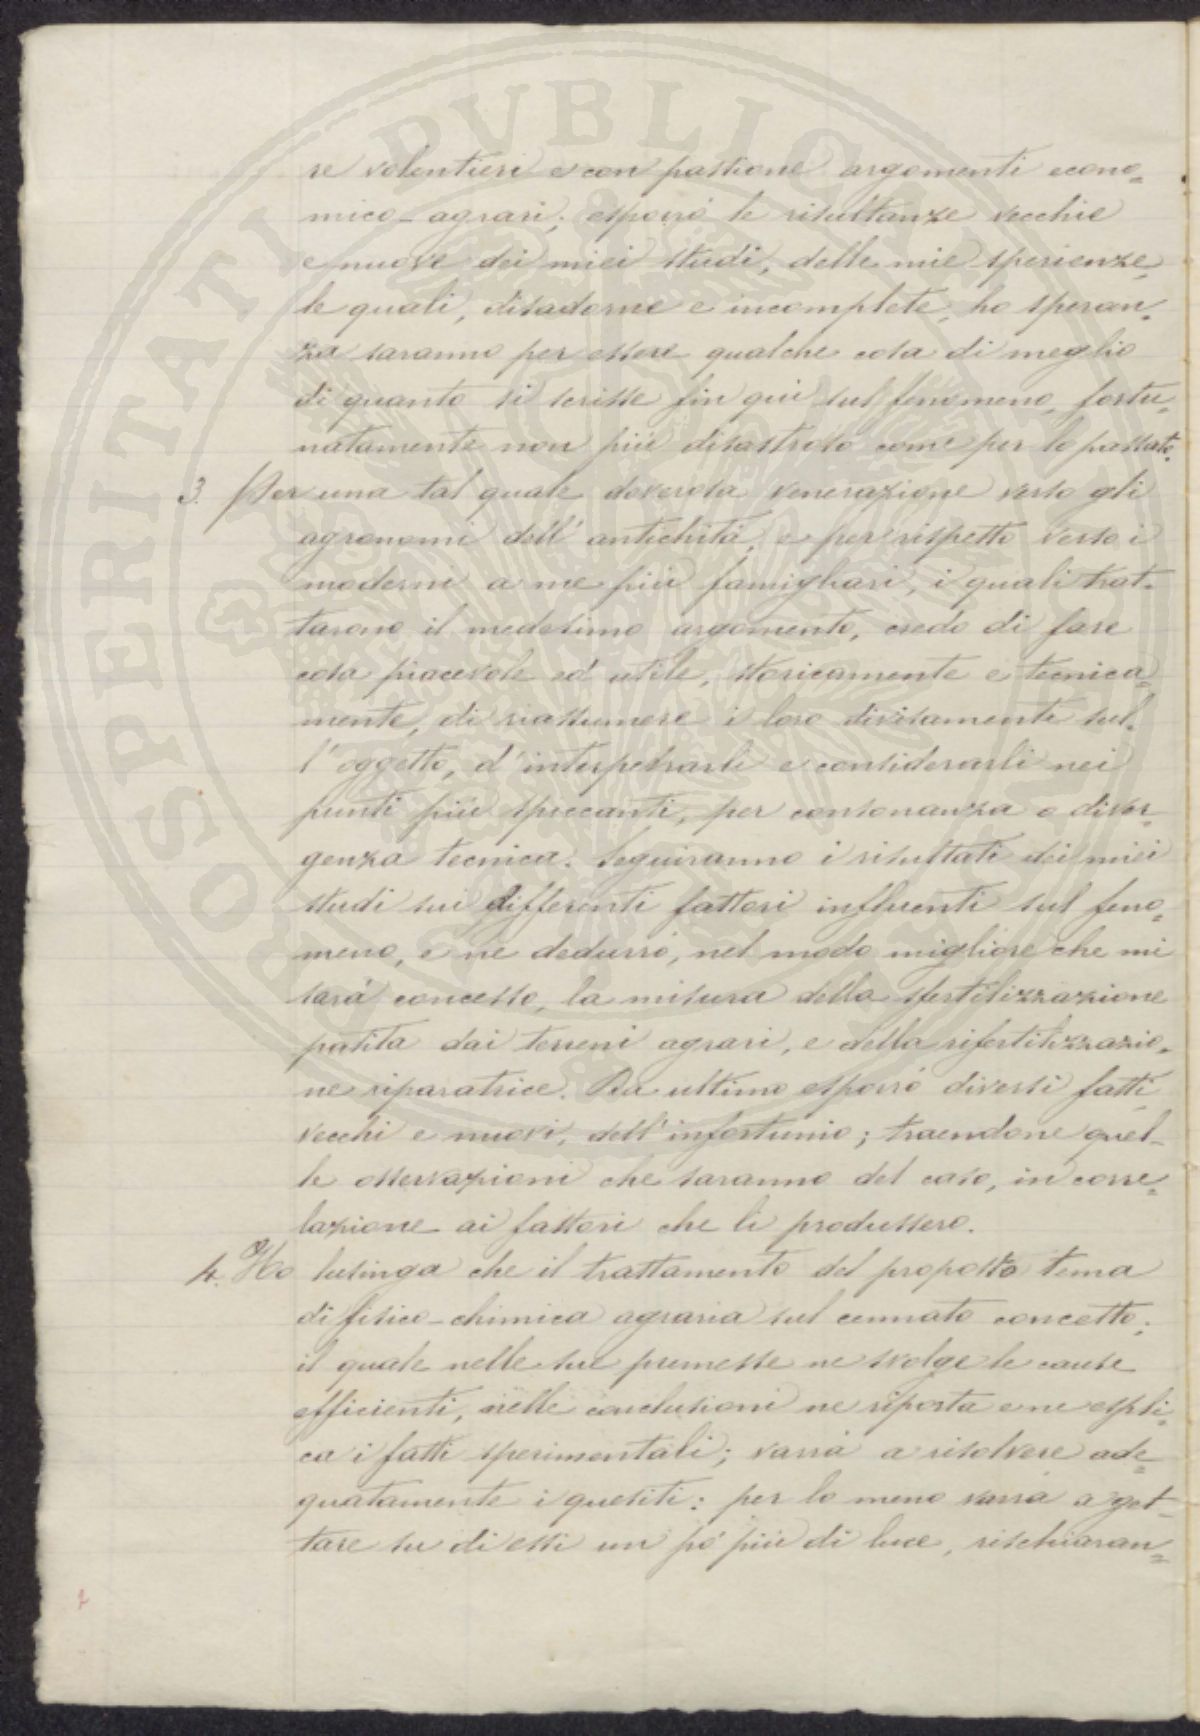 re volentieri e con passione argomenti econo=
mico-agrari; esporrò le risultanze vecchie
e nuove dei miei studi, delle mie sperienze,
le quali, disadorne e incomplete, ho speran=
za saranno per essere qualche cosa di meglio
di quanto si scrisse fin qui sul fenomeno, fortu=
natamente non più disastroso come per lo passato.
3. Per una tal quale doverosa venerazione verso gli
agronomi dell'antichità, e per rispetto verso i
moderni a me più famigliari, i quali trat=
tarono il medesimo argomento, credo di fare
cosa piacevole ed utile, storicamente e tecnica=
mente, di riassumere i loro divisamenti sul=
l'oggetto, d'interpetrarli e considerarli nei
punti più spiccanti, per consonanza o diver=
genza tecnica. Seguiranno i risultati dei miei
studi sui differenti fattori influenti sul feno=
meno, e ne dedurrò, nel modo migliore che mi
sarà concesso, la misura della sfertilizzazione
patita dai terreni agrari, e della rifertilizzazio=
ne riparatrice. Da ultimo esporrò diversi fatti
vecchi e nuovi, dell'infortunio; traendone quel=
le osservazioni che saranno del caso, in corre=
lazione ai fattori che li produssero.
4. Ho lusinga che il trattamento del proposto tema
di fisico-chimica agraria sul cennato concetto;
il quale nelle sue premesse ne svolge le cause
efficienti, nelle conclusioni ne riporta e ne espli=
ca i fatti sperimentali; varrà a risolvere ade=
quatamente i quesiti: per lo meno varrà a get=
tare su di essi un po' più di luce, rischiaran=
2
PROSPERITATI PVBLICAE